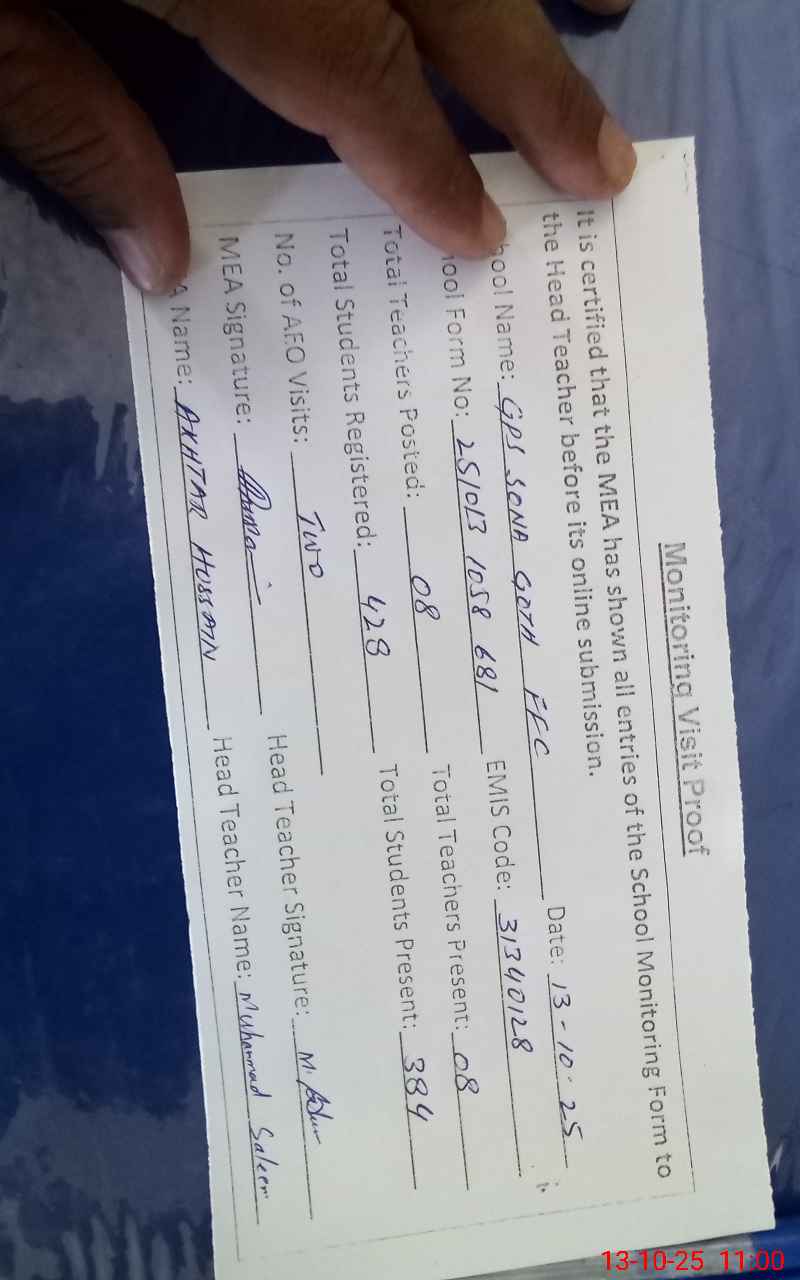 Monitoring Visit Proof
It is certified that the MEA has shown all entries of the School Monitoring Form to
the Head Teacher before its online submission.
hool Name: GPS SONA GOTH FFC Date: 13-10-25
hool Form No: 251013 1058 681 EMIS Code: 31340128
Total Teachers Posted: 08 Total Teachers Present: 08
Total Students Registered: 428 Total Students Present: 384
No. of AEO Visits: Two
MEA Signature: Head Teacher Signature: M.
A Name: AKHTAR HUSSAIN Head Teacher Name: Muhammad Saleem
13-10-25 11:00